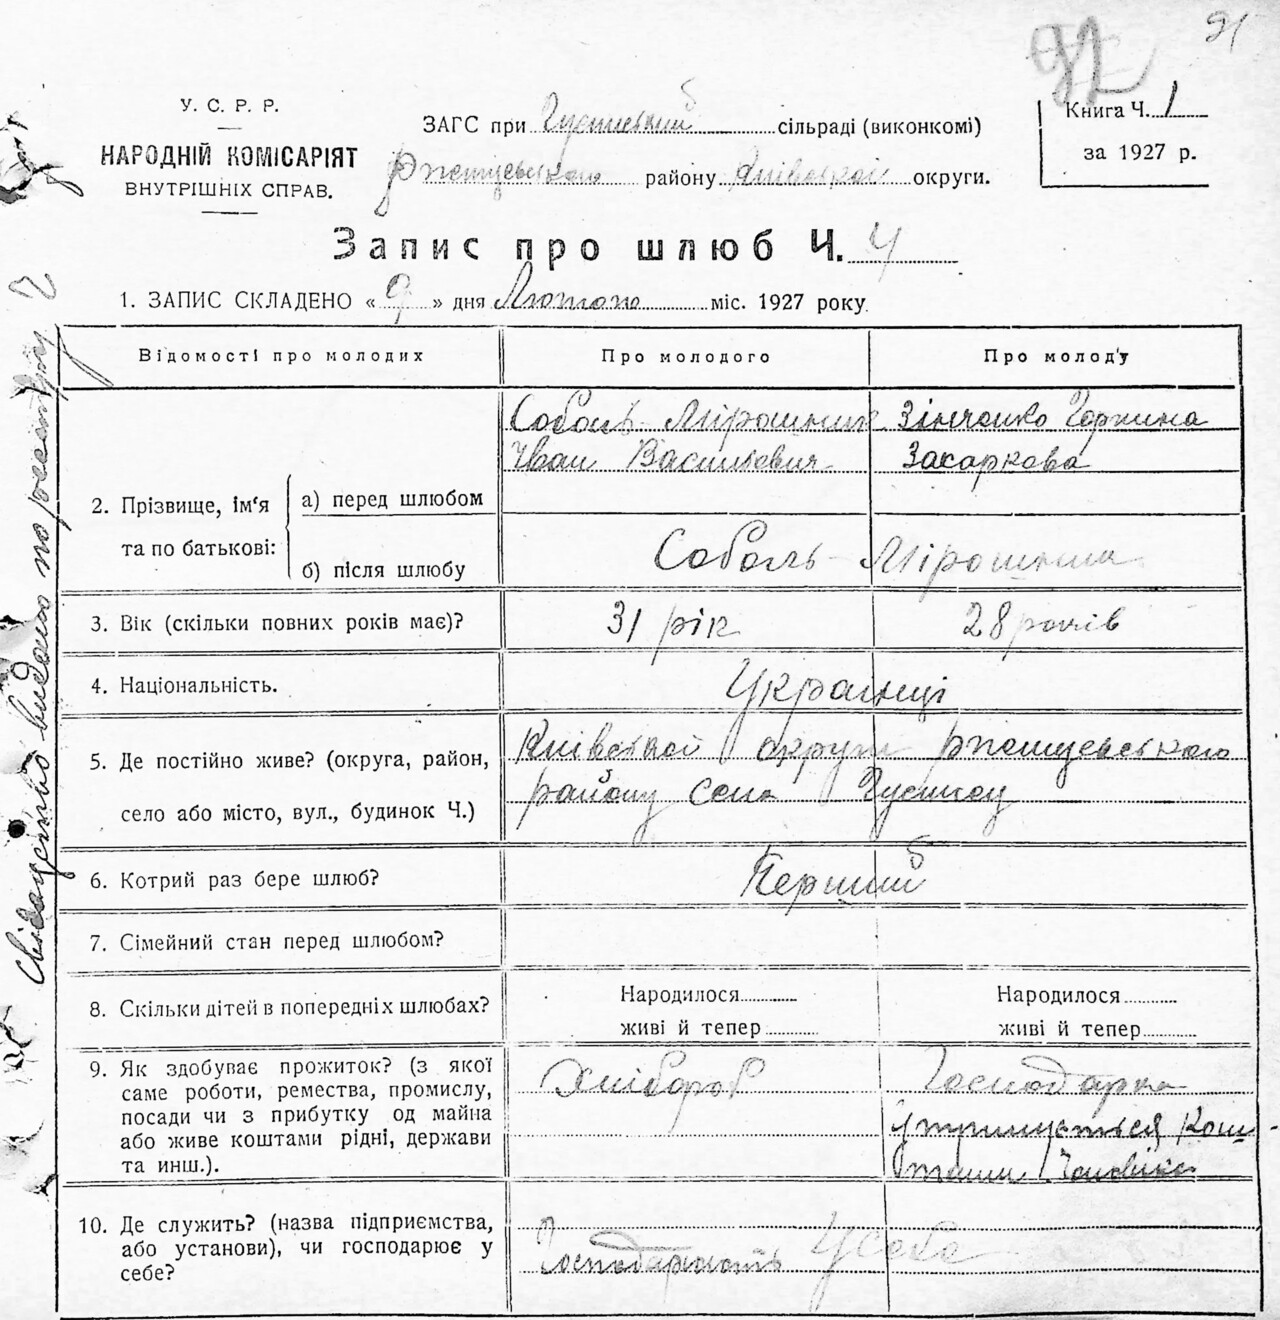 92
91
У. С. Р. Р.
НАРОДНІЙ КОМІСАРІЯТ
ВНУТРІШНІХ СПРАВ.
ЗАГС при сільраді (виконкомі)
Ржищевського району Київської округи.
Книга Ч. 1
за 1927 р.
Запис про шлюб Ч. 4
1. ЗАПИС СКЛАДЕНО « 9 » дня Лютого міс. 1927 року.
Відомості про молодих
Про молодого
Про молоду
2. Прізвище, ім'я
та по батькові:
а) перед шлюбом
б) після шлюбу
Соболь-Мірошник
Іван Васильович
Зінченко Горпина
Захаркова
Соболь-Мірошник
3. Вік (скільки повних років має)?
31 рік
28 років
4. Національність.
Українці
5. Де постійно живе? (округа, район,
село або місто, вул., будинок Ч.)
Київської округи Ржищевського
району села
6. Котрий раз бере шлюб?
Перший
7. Сімейний стан перед шлюбом?
8. Скільки дітей в попередніх шлюбах?
Народилося
живі й тепер
Народилося
живі й тепер
9. Як здобуває прожиток? (з якої
саме роботи, ремества, промислу,
посади чи з прибутку од майна
або живе коштами рідні, держави
та инш.).
Хлібороб
Господарка
утримується кош-
тами Чоловіка
10. Де служить? (назва підприємства,
або установи), чи господарює у
себе?
Господарюють У себе
Свідоцтво видано по реєстру 2